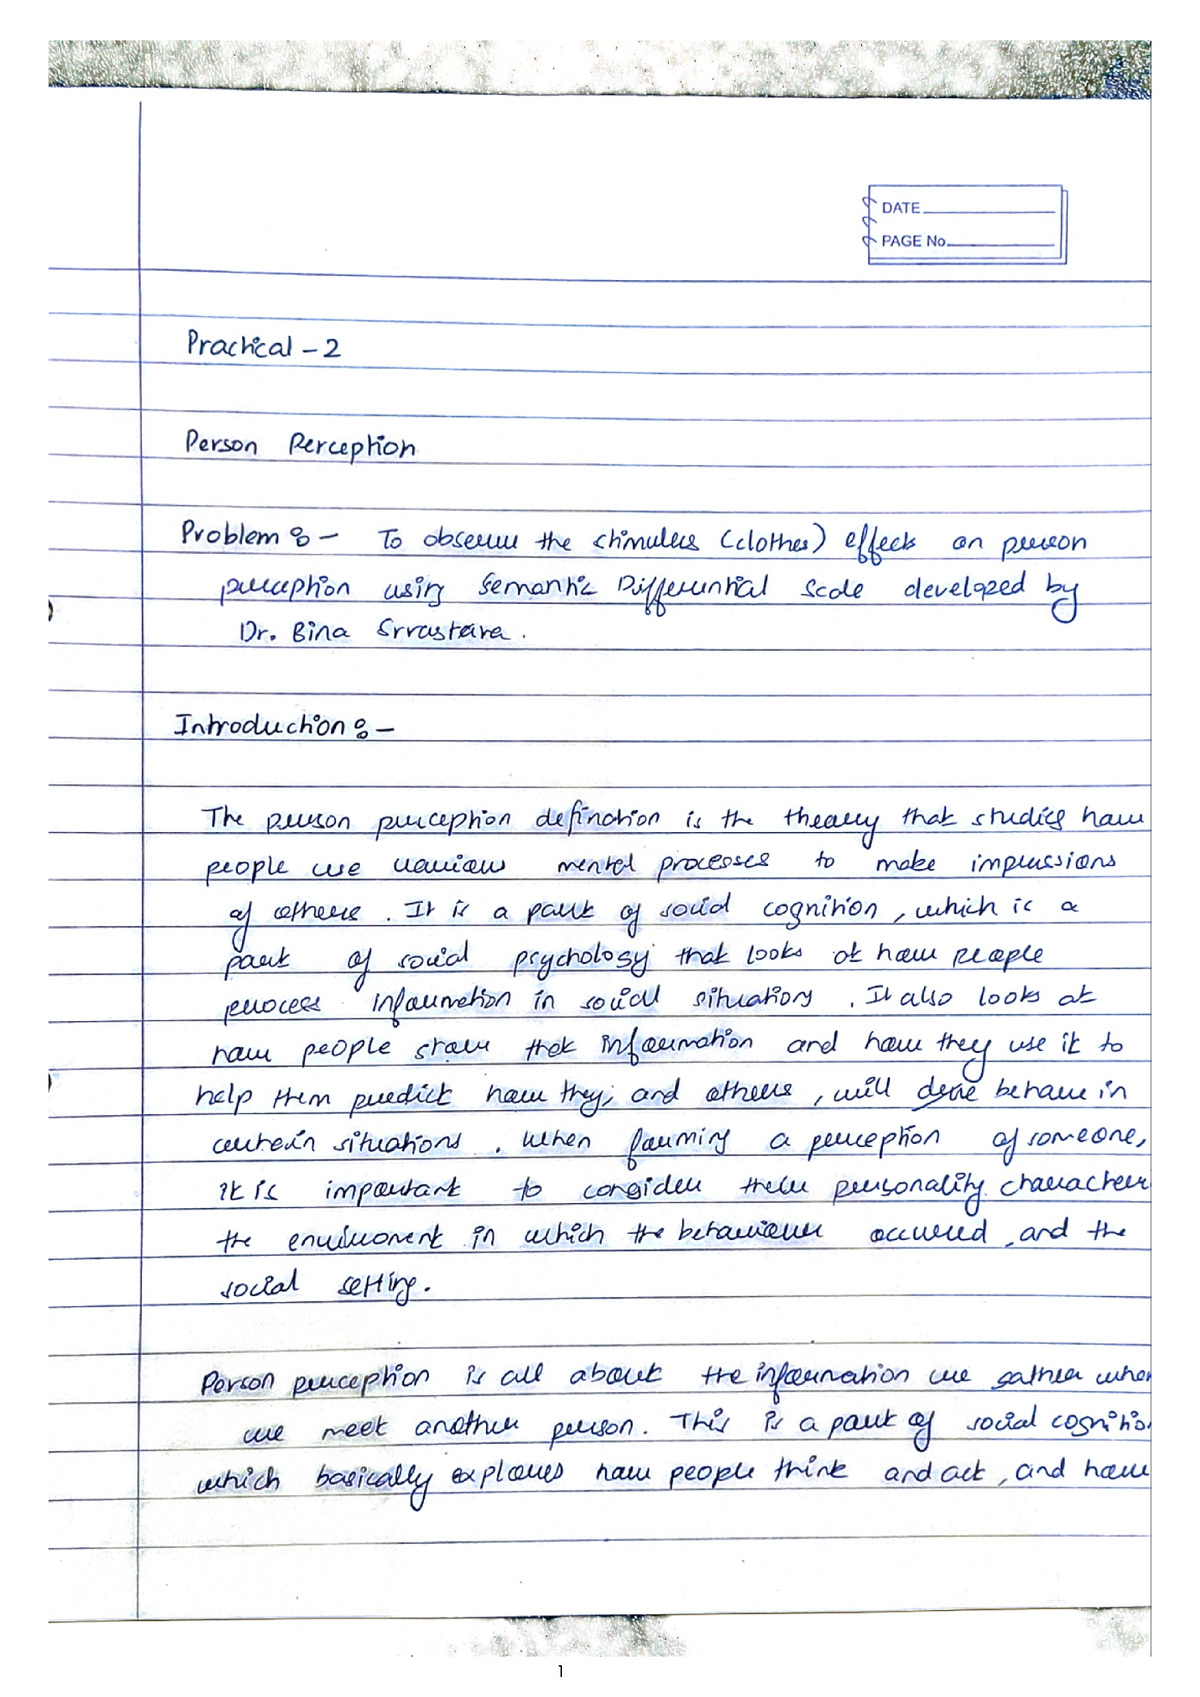 DATE
PAGE No.
Practical - 2
Person Perception
Problem :- To observe the stimulus (clothes) effects on person
perception using Semantic Differential Scale developed by
Dr. Bina Srivastava.
Introduction :-
The person perception definition is the theory that studies how
people use various mental processes to make impressions
of others. It is a part of social cognition, which is a
part of social psychology that looks at how people
process information in social situations. It also looks at
how people store that information and how they use it to
help them predict how they, and others, will behave in
certain situations. When forming a perception of someone,
it is important to consider their personality character
the environment in which the behaviour occured, and the
social setting.
Person perception is all about the information we gather when
we meet another person. This is a part of social cognitio
which basically explores how people think and act, and how
1